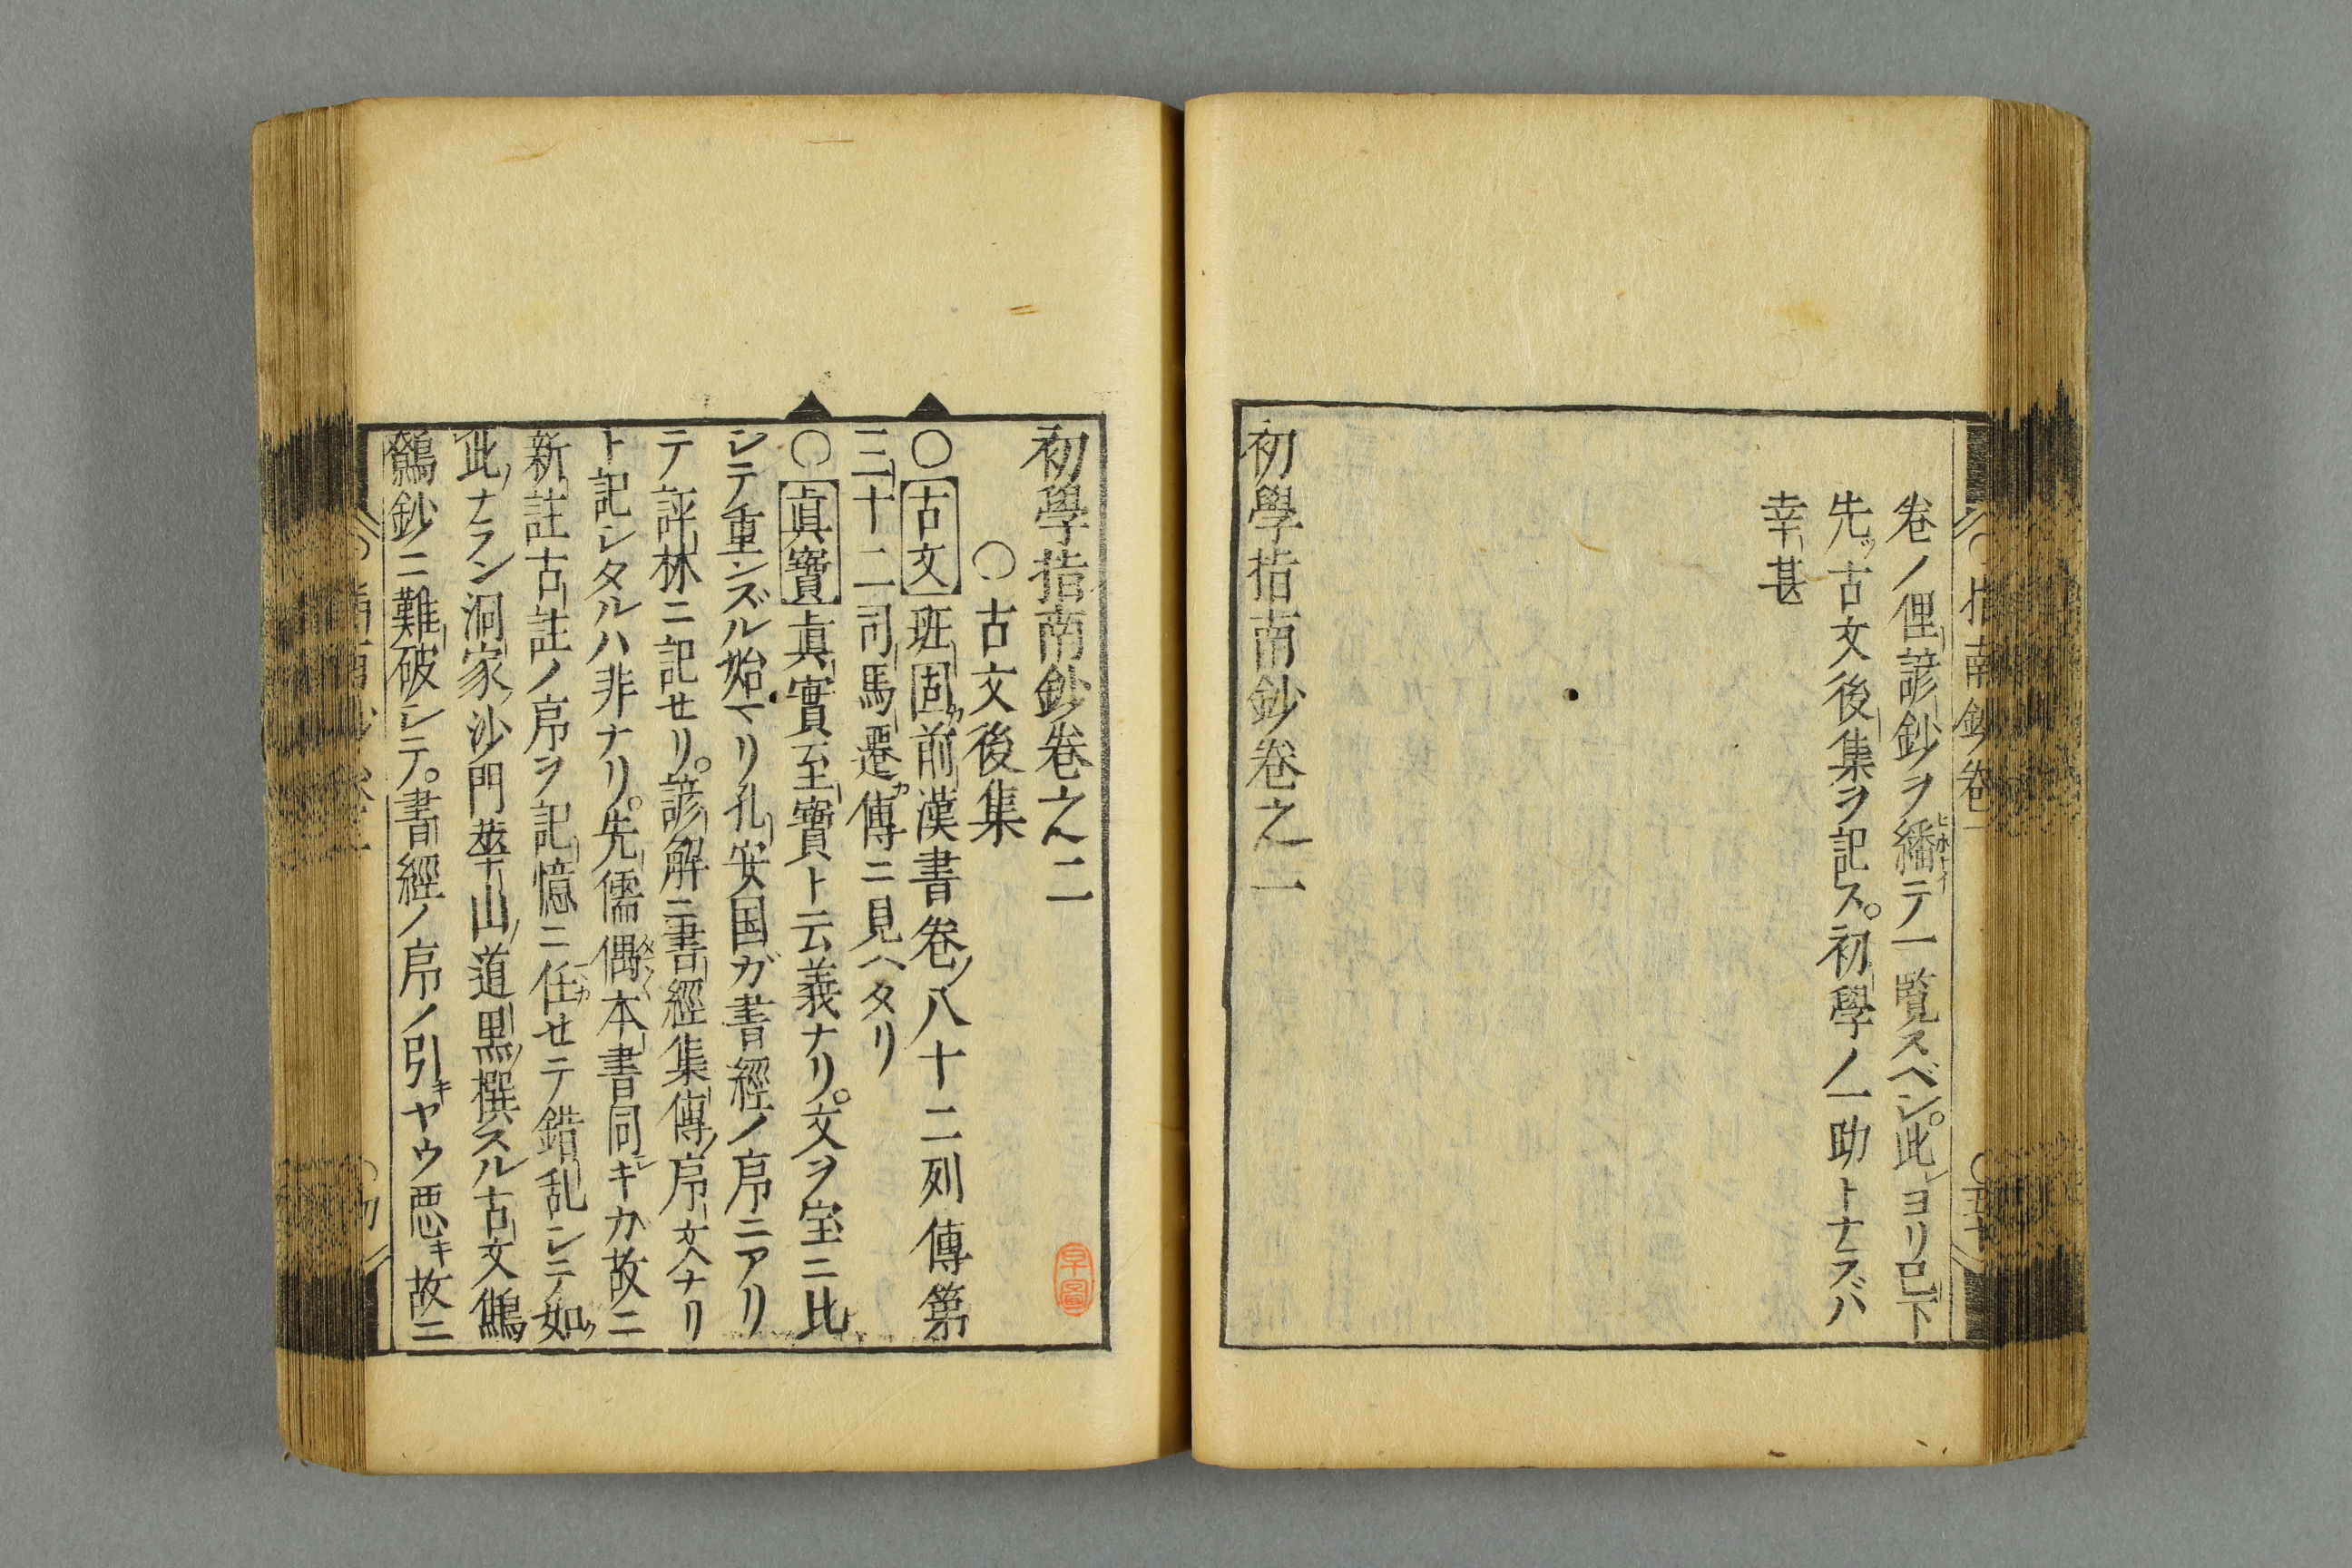 卷ノ俚諺鈔ヲ繙テ一覧スベシ。此ヨリ已下
先ッ古文後集ヲ記ス。初學ノ一助トナラバ
幸甚
初學指南鈔卷之一
初學指南鈔卷之二
○古文後集
○古文班固カ前漢書卷ノ八十二列傳第
三十二司馬遷カ傳ニ見ヘタリ
○眞寶眞實至寶ト云義ナリ。文ヲ宝ニ比
シテ重ンズル始マリ孔安国ガ書經ノ序ニアリ
テ評林ニ記セリ。諺解ニ書經集傳ノ序文ナリ
ト記シタルハ非ナリ。先儒偶本書同キカ故ニ
新註古註ノ序ヲ記憶ニ任セテ錯乱シテ如
此ナラン洞家ノ沙門華山ノ道黒ノ撰スル古文鵂
鶹鈔ニ難破シテ。書經ノ序ノ引キヤウ悪キ故ニ
指南鈔卷一